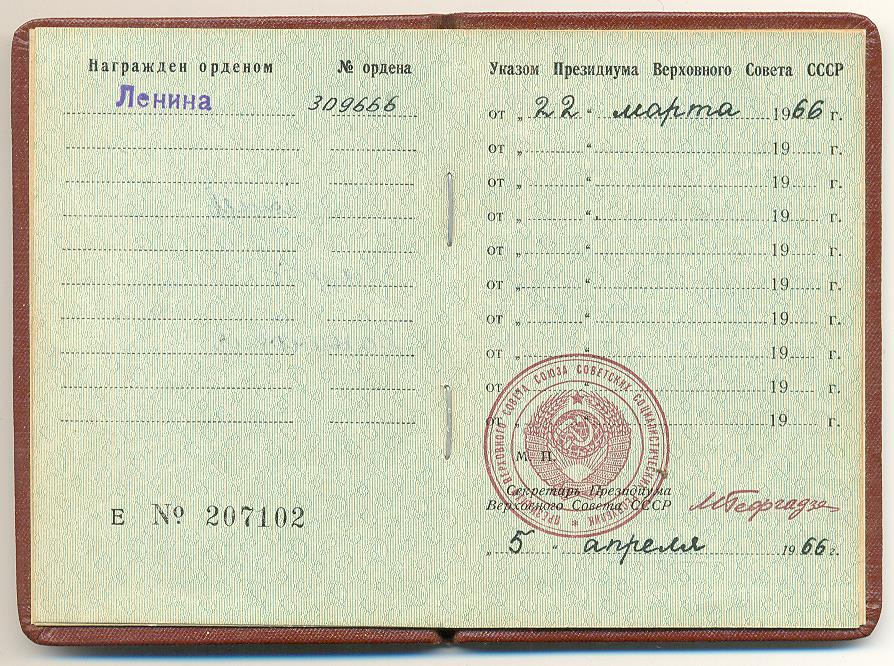 Награжден орденом № ордена
Ленина 309666
Указом Президиума Верховного Совета СССР
от „ 22 “ марта 1966 г.
от „ “ 19 г.
от „ “ 19 г.
от „ “ 19 г.
от „ “ 19 г.
от „ “ 19 г.
от „ “ 19 г.
от „ “ 19 г.
от „ “ 19 г.
от „ “ 19 г.
ПРЕЗИДИУМ ВЕРХОВНОГО СОВЕТА СОЮЗА СОВЕТСКИХ СОЦИАЛИСТИЧЕСКИХ РЕСПУБЛИК
М. П.
Секретарь Президиума
Верховного Совета СССР
М Георгадзе
„ 5 “ апреля 1966 г.
Е № 207102